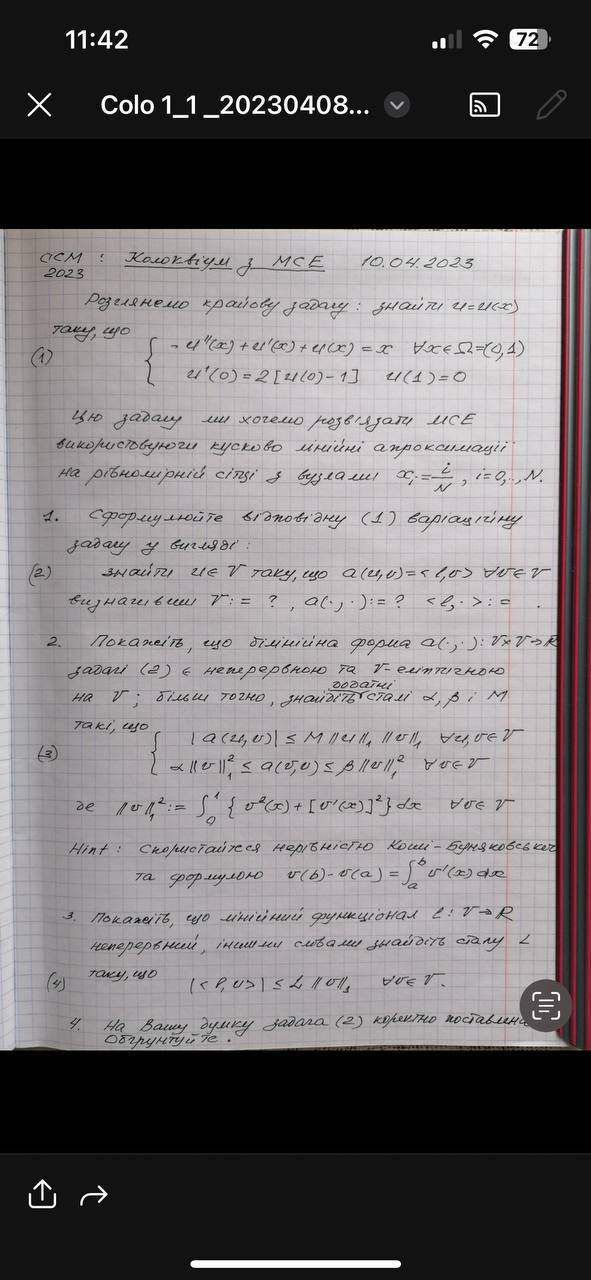 11:42
72
Colo 1_1 _20230408...
ПСМ : Колоквіум з МСЕ 10.04.2023
2023
Розглянемо крайову задачу : знайти u=u(x)
таку, що
(1) { - u''(x) + u'(x) + u(x) = x ∀x∈Ω=(0,1)
u'(0) = 2[u(0)-1] u(1)=0
Цю задачу ми хочемо розвʼязати МСЕ
використовуючи кусково лінійні апроксимації
на рівномірній сітці з вузлами xᵢ = i/N , i=0,..,N.
1. Сформулюйте відповідну (1) варіаційну
задачу у вигляді :
(2) знайти u∈V таку, що a(u,v)=<l,v> ∀v∈V
визначивши V:= ? , a(·,·):= ? <l,·>:= .
2. Покажіть, що білінійна форма a(·,·): V×V→R
задачі (2) є неперервною та V-еліптичною
на V ; більш точно, знайдіть додатні сталі α, β і M
такі, що
(3) { |a(u,v)| ≤ M ‖u‖₁ ‖v‖₁ ∀u,v∈V
α‖v‖₁² ≤ a(v,v) ≤ β‖v‖₁² ∀v∈V
де ‖v‖₁² := ∫₀¹ { v²(x) + [v'(x)]² } dx ∀v∈V
Hint : Скористайтеся нерівністю Коші-Буняковського
та формулою v(b)-v(a) = ∫ₐᵇ v'(x) dx
3. Покажіть, що лінійний функціонал l : V→R
неперервний, іншими словами знайдіть сталу L
таку, що
(4) |<l,v>| ≤ L ‖v‖₁ ∀v∈V.
4. На Вашу думку задача (2) коректно поставлена
Обґрунтуйте .